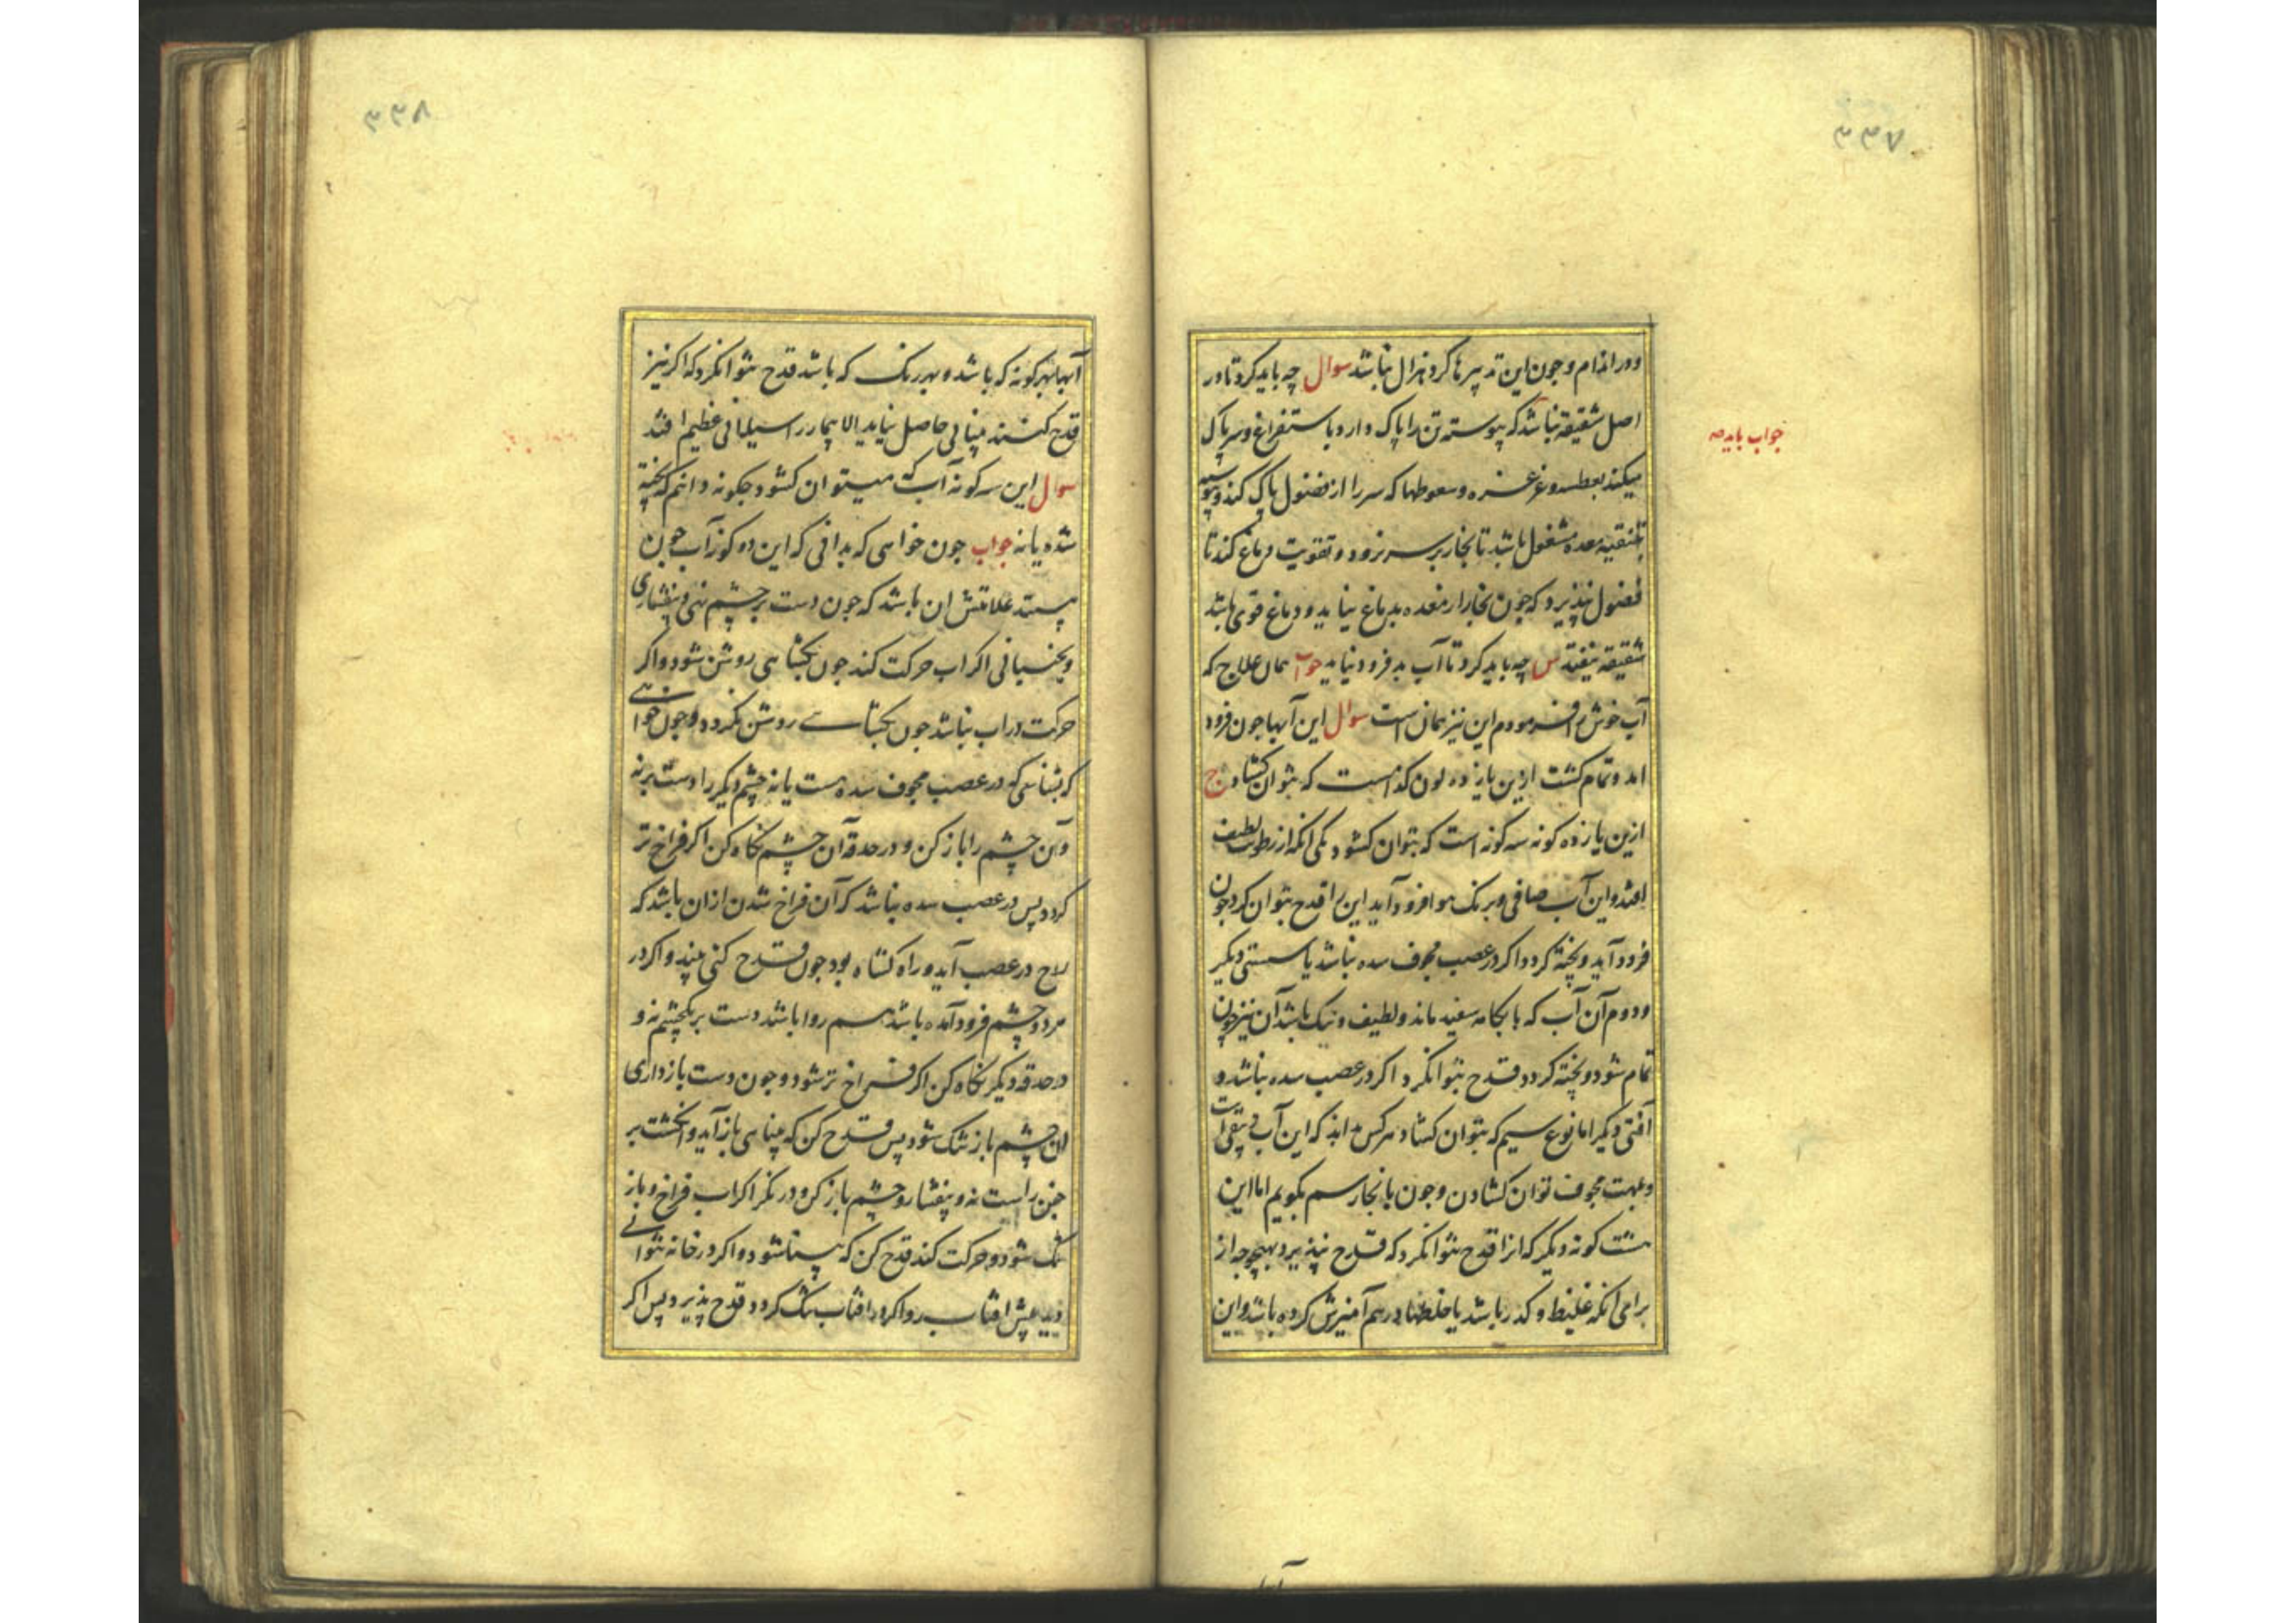 ۳۳۷
ودر اندام وچون این تدبیرها کرد نزال نباشد سوال چه باید کرد تا در
اصل شقیقه نباشد که پیوسته تن را پاک دارد باستفراغ وسر پاک
جواب باید که
میکند بعطسه وغرغره وسعوطها که سر را از فضول پاک کند وپیوسته
بتنقیه معده مشغول باشد تا بخار بر سر نرود وتقویت دماغ کند تا
فضول نپذیرد که چون بخار از معده بدماغ نیاید ودماغ قوی باشد
شقیقه نیفتد س چه باید کرد تا آب بد فرود نیاید جواب همان علاج که
آب خوش را فرمودم این نیز همان است سوال این آبها چون فرود
امد وتمام گشت ازین یازده لون کدامست که بتوان گشاد ج
ازین یازده گونه سه گونه است که بتوان گشود یکی انکه از رطوبت لطیف
افتد واین آب صافی وبرنک هوا فرود آید این را قدح بتوان کرد چون
فرود آید وپخته گردد اگر در عصب مجوف سده نباشد یا سستی دیگر
ودوم آن آب که بابکامه سفید ماند ولطیف ونیک باشد آن نیز چون
تمام شود وپخته گردد قدح بتوانکرد اگر در عصب سده نباشد و
آفتی دیگر اما نوع سیم که بتوان گشاد هرکس داند که این آب
مجوف توان گشادن وچون بانجا رسم بگویم اما این
هشت گونه دیگر که انرا قدح نتوانکرد که قدح نپذیرد بهیچوجه از
برای انکه غلیظ وکدر باشد یا خلطها درهم آمیزش کرده باشد واین
۳۳۸
آبها بهر گونه که باشد وبهر رنک که باشد قدح نتوانکرد که اگر نیز
قدح کنند بینائی حاصل نیاید الا بیمار را عظیم افتد
سوال این سه گونه آب که میتوان گشود چگونه دانم که پخته
شده یا نه جواب چون خواهی که بدانی که این دو گونه آب چون
علامتش ان باشد که چون دست بر چشم نهی وبیفشاری
وبجنبانی اگر اب حرکت کند چون بگشائی روشن شود واگر
حرکت در اب نباشد چون بگشائی روشن نگردد وچون خواهی
که بشناسی که در عصب مجوف سده هست یا نه چشم دیگر را دست برنه
وآن چشم را باز کن ودر حدقه آن چشم نگاه کن اگر فراخ تر
گردد پس در عصب سده نباشد که آن فراخ شدن از ان باشد که
در عصب آید وراه گشاده بود چون قدح کنی بیند واگر در
هر دو چشم فرود آمده باشد هم روا باشد دست بر یکچشم نه و
در حدقه دیگر نگاه کن اگر فراخ تر شود وچون دست باز داری
ان چشم باز تنک شود پس قدح کن که بینائی باز آید وانگشت بر
جفن راست نه وبیفشار وچشم باز کن ودر نگر اگر اب فراخ وباز
تنک شود وحرکت کند قدح کن که بینا شود واگر در خانه نتوانی
دید پیش افتاب رو اگر در افتاب تنک گردد قدح پذیرد پس اگر